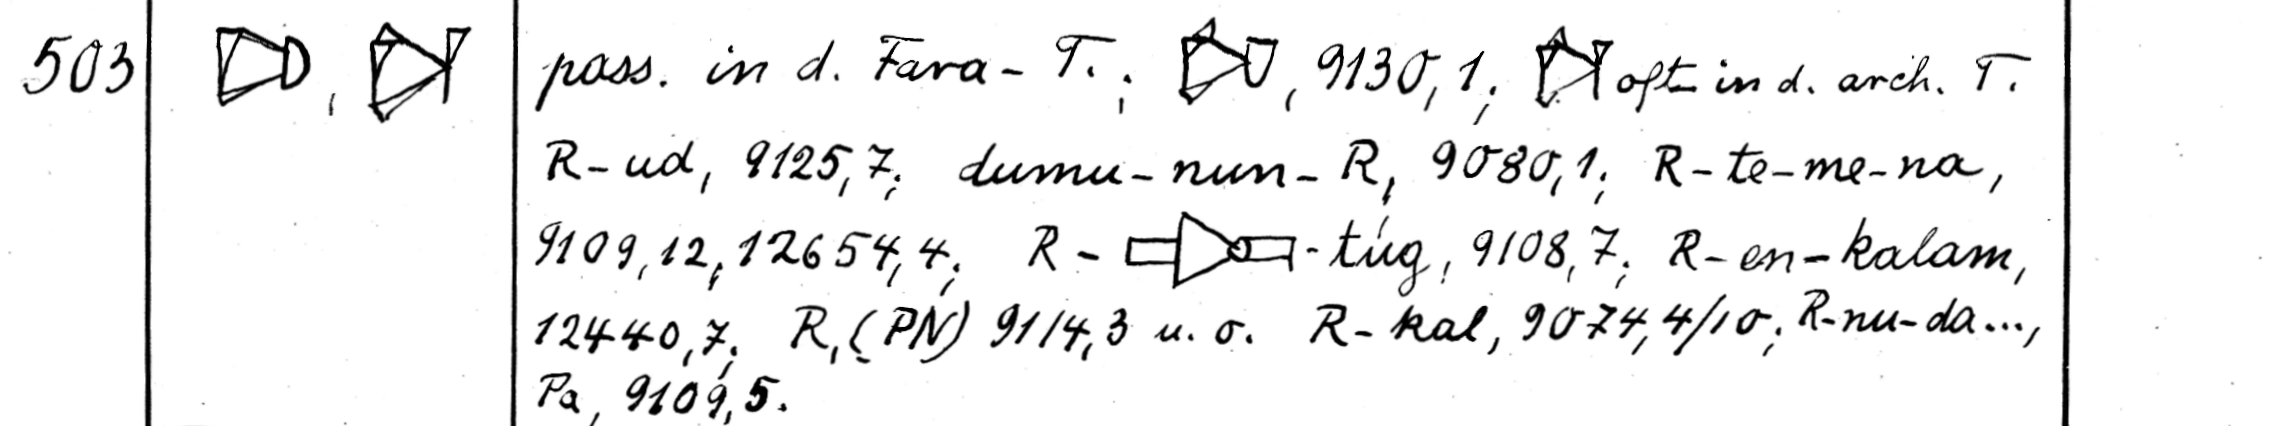 503 , pass. in d. Fara-T.; , 9130,1; oft in d. arch. T.
R-ud, 9125,7; dumu-nun-R, 9080,1; R-te-me-na,
9109,12; 12654,4; R- -túg, 9108,7; R-en-kalam,
12440,7; R, (PN) 9114,3 u. o. R-kal, 9074,4/10; R-nu-da...,
Pa, 9109,5.